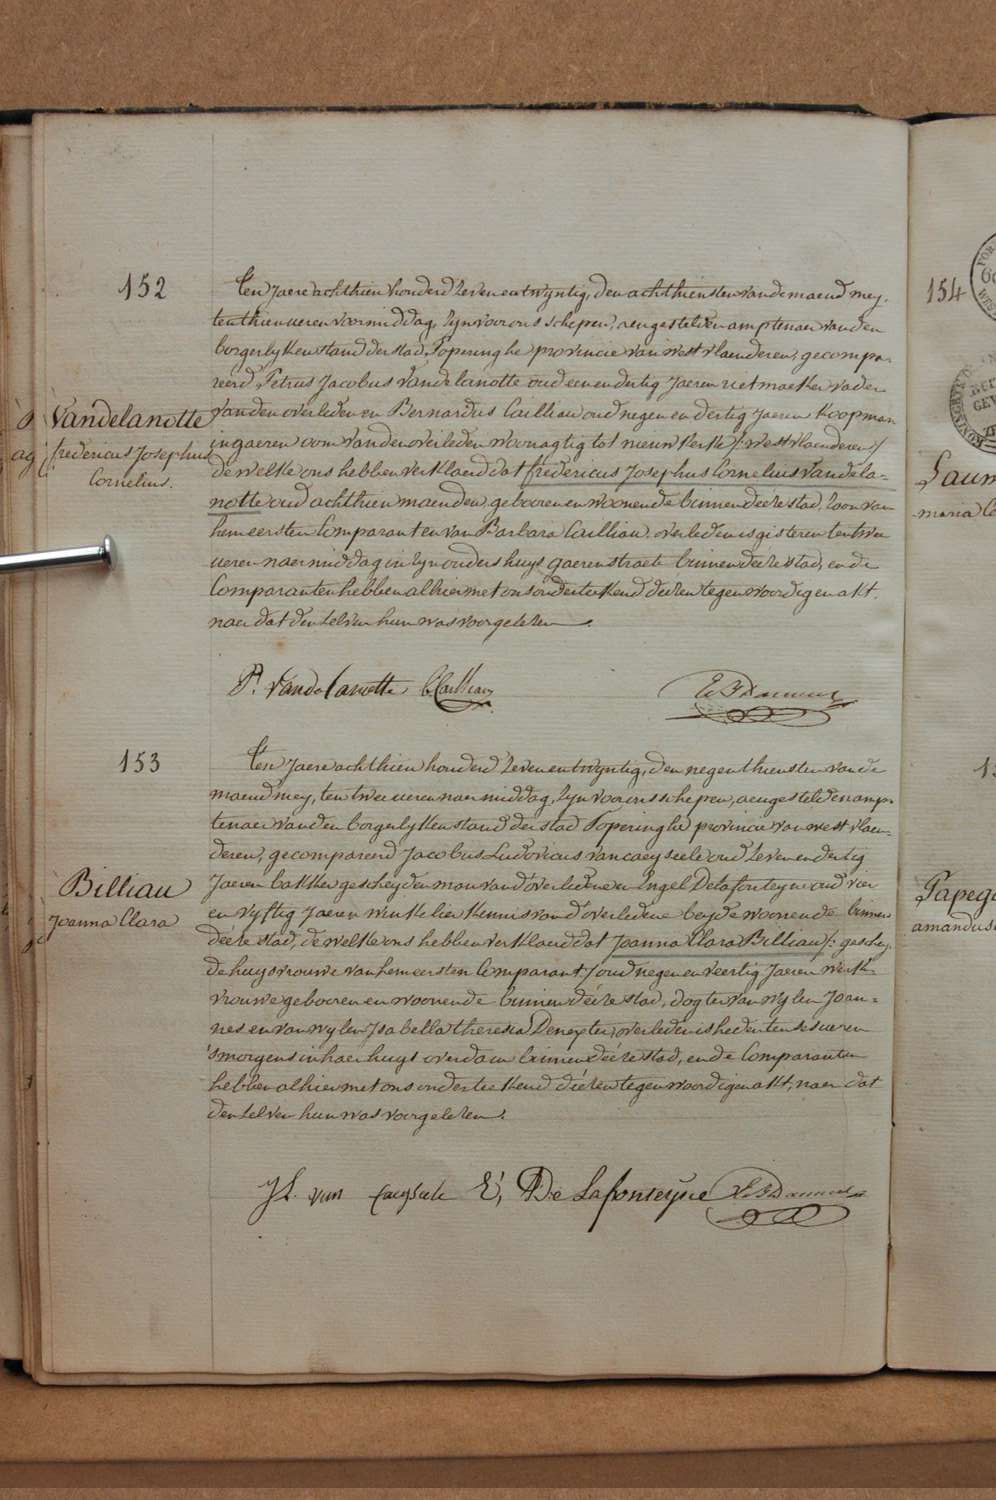 152
Vandelanotte
fredericus Josephus
Cornelius.
Ten Jaere achthien honderd zeven en twyntig, den achthiensten van de maend mey,
ten thien ueren voormiddag, zyn voor ons schepen, aengestelden amptenaer van den
borgerlyken stand der stad Poperinghe provincie van westvlaenderen, gecompa-
reerd, Petrus Jacobus Vandelanotte oud een en dertig Jaeren rietmaeker vader
van den overleden en Bernardus Cailliau oud negen en dertig Jaeren Koopman
in gaeren oom van den overleden woonagtig tot nieuwkerke /: westvlaenderen :/
de welke ons hebben verklaerd dat fredericus Josephus Cornelius Vandela-
notte oud achthien maenden, gebooren en woonende binnen deéze stad, zoon van
hem eersten Comparant en van Barbara Cailliau, overleden is gisteren ten twee
ueren naermiddag in zyn ouders huys gaerenstraete binnen deéze stad, en de
Comparanten hebben alhier met ons onderteekend deézen tegenwoordigen akt,
naer dat den zelven hun was voorgelezen.
P. Vandelanotte B Cailliau
153
Billiau
Joanna Clara
Ten Jaere achthien honderd zeven en twyntig, den negenthiensten van de
maend mey, ten twee ueren naermiddag, zyn voor ons schepen, aengestelden amp-
tenaer van den borgerlyken stand der stad Poperinghe provincie van westvlaen-
deren, gecompareerd Jacobus Ludovicus vancaeyseele oud zeven en dertig
Jaeren bakker gescheyden man van d'overledene en Engel Delafonteyne oud vier
en vyftig Jaeren winkelier kennis van d'overledene beyde woonende binnen
deéze stad, de welke ons hebben verklaerd dat Joanna Clara Billiau /: geschey-
de huysvrouwe van hem eersten Comparant :/ oud negen en veertig Jaeren werk-
vrouwe gebooren en woonende binnen deéze stad, dogter van wylen Joan-
nes en van wylen Isabella theresia, overleden is heden ten ses ueren
's morgens in haer huys overdam binnen deéze stad, en de Comparanten
hebben alhier met ons onderteekend deézen tegenwoordigen akt, naer dat
den zelven hun was voorgelezen.
JL. van Caeyseele E, De Lafonteyne
154